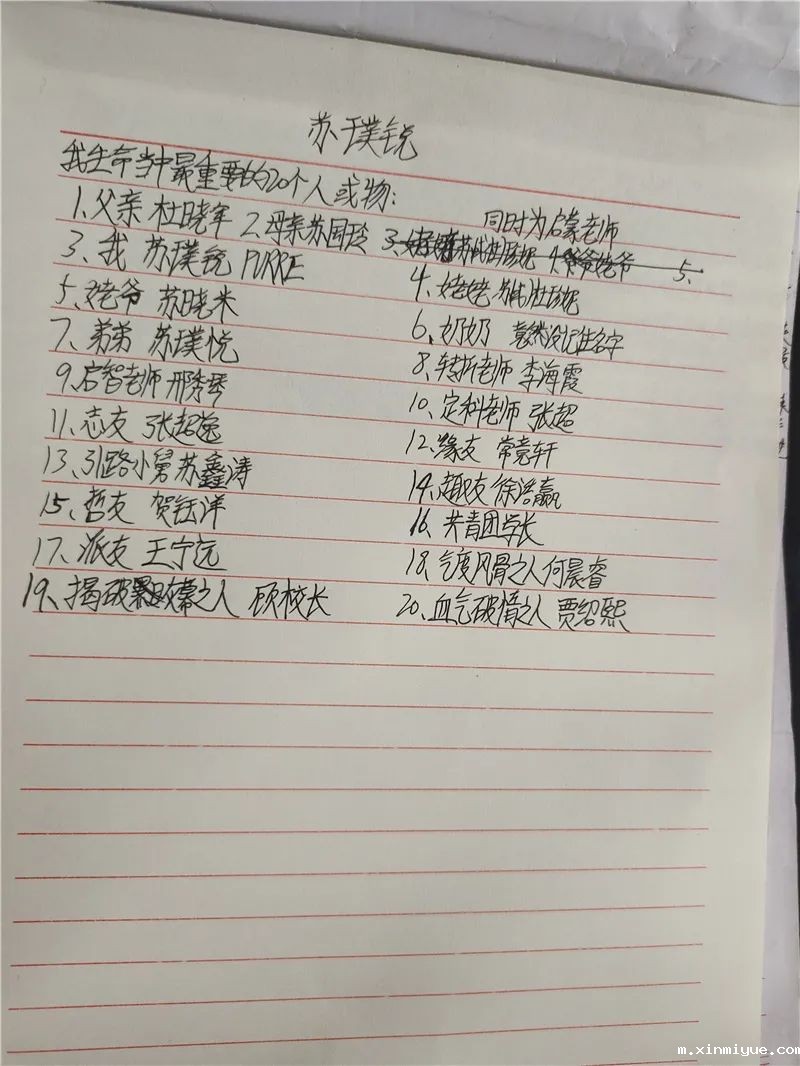 苏璞锐
我生命当中最重要的20个人或物:
同时为启蒙老师
1.父亲 杜晓军 2.母亲苏国玲 3. 4.爷爷姥爷 5.
3、我 苏璞锐 PURRE
4、姥姥
5、姥爷 苏晓米
6、奶奶 竟然没记住名字
7、弟弟 苏璞悦
8、转折老师 李海霞
9、启智老师 邢秀琴
10、定科老师 张超
11、志友 张超逸
12、缘友 常竞轩
13、引路小舅 苏鑫涛
14、趣友 徐浩赢
15、哲友 贺钰洋
16、共青团学长
17、派友 王宁远
18、气度风骨之人 何晨睿
19、揭破黑幕之人 顾校长
20、血气破情之人 贾绍熙
m.xinmiyue.com